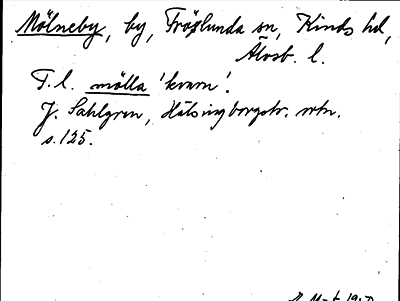 Mölneby, by, Fröslunda sn, Kinds hd,
Älvsb. l.
T.l. mölla 'kvarn'.
J. Sahlgren, Hälsingborgstr. ortn.
s. 125.